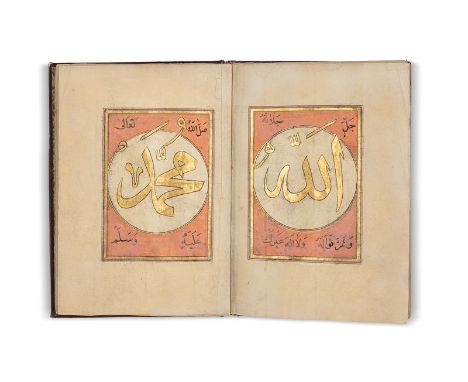 جل جلاله
الله
وعم نواله ولا اله غيرك
صلى الله تعالى
محمد
عليه وسلم